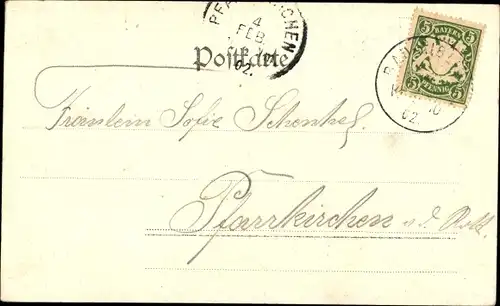 PFARRKIRCHEN
4
FEB
02.
Postkarte
5 BAYERN 5
5 PFENNIG 5
02.
Fräulein Sofie Schenkel
Pfarrkirchen a. d. Rott.